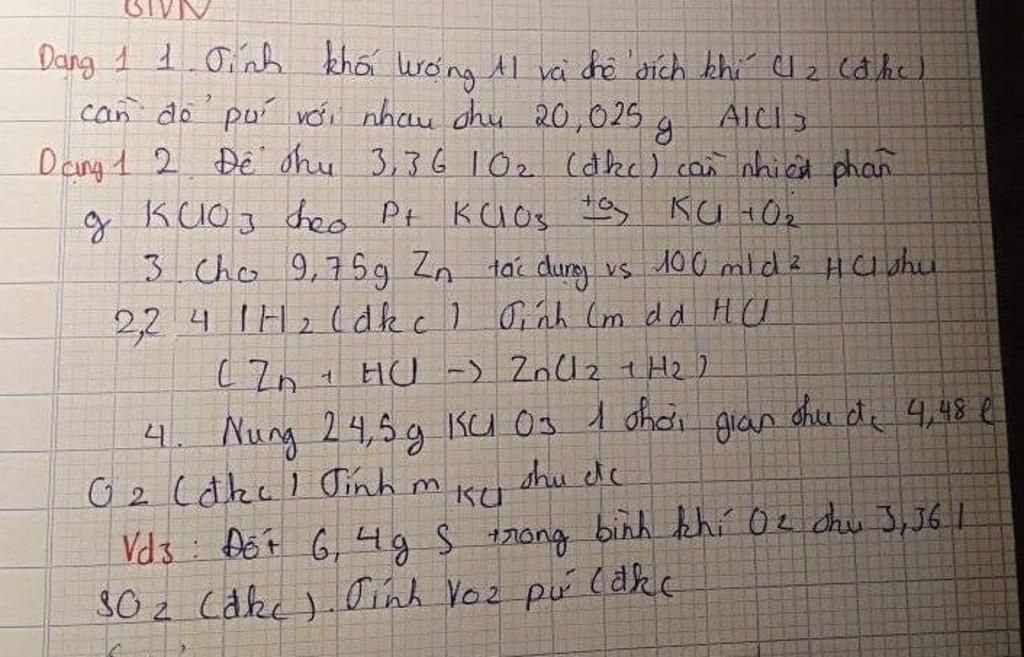 BTVN
Dạng 1 1. Tính khối lượng Al và thể tích khí Cl2 (đkc)
cần để pứ với nhau thu 20,025g AlCl3
Dạng 1 2. Để thu 3,36 l O2 (đkc) cần nhiệt phân
g KClO3 theo Pt KClO3 KCl + O2
3. Cho 9,75g Zn tác dụng vs 100 ml d² HCl thu
2,24 l H2 (đkc) Tính Cm dd HCl
(Zn + HCl -> ZnCl2 + H2)
4. Nung 24,5g KClO3 1 thời gian thu đc 4,48 l
O2 (đkc) Tính m KCl thu đc
Vd3: Đốt 6,4g S trong bình khí O2 thu 3,36 l
SO2 (đkc). Tính VO2 pứ (đkc